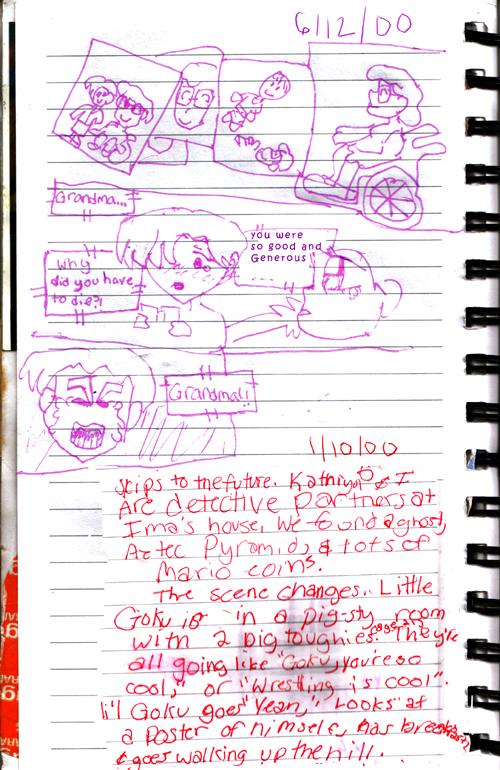 6/12/00
Grandma...
you were
so good and
Generous!
Why
did you have
to die?!
Grandma!!
1/10/00
skips to the future. Kathryn & I
Are detective partners at
Ima's house. We found a ghost,
Aztec Pyramid, & lots of
Mario coins.
The scene changes. Little
Goku is in a pig-sty room
with 2 big toughies They're
all going like "Goku, you're so
cool," or "Wrestling is cool".
li'l Goku goes "Yeah," Looks at
a Poster of himself, has breakfast
& goes walking up the hill.